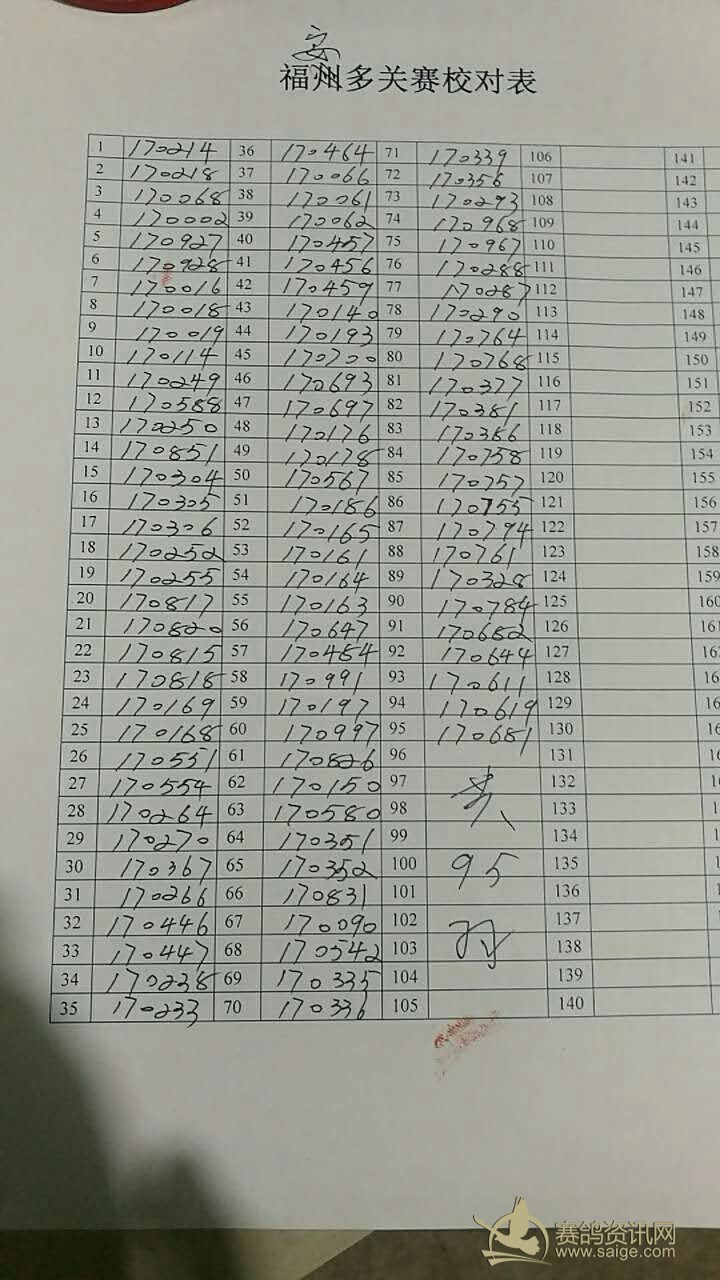 安
福州多关赛校对表
1 170214 36 170464 71 170339 106 141
2 170218 37 170066 72 170356 107 142
3 170068 38 170061 73 170293 108 143
4 170002 39 170062 74 170968 109 144
5 170927 40 170457 75 170967 110 145
6 170928 41 170456 76 170288 111 146
7 170016 42 170459 77 170287 112 147
8 170018 43 170140 78 170290 113 148
9 170019 44 170193 79 170764 114 149
10 170114 45 170700 80 170768 115 150
11 170249 46 170693 81 170377 116 151
12 170588 47 170697 82 170381 117 152
13 170250 48 170176 83 170386 118 153
14 170851 49 170178 84 170758 119 154
15 170304 50 170567 85 170757 120 155
16 170305 51 170186 86 170755 121 156
17 170306 52 170165 87 170794 122 157
18 170252 53 170161 88 170761 123 158
19 170255 54 170164 89 170328 124 159
20 170817 55 170163 90 170784 125 160
21 170820 56 170647 91 170682 126 161
22 170815 57 170484 92 170644 127
23 170818 58 170991 93 170611 128
24 170169 59 170197 94 170619 129
25 170168 60 170997 95 170681 130
26 170551 61 170826 96 131
27 170554 62 170150 97 132
28 170264 63 170580 98 133
29 170270 64 170351 99 134
30 170367 65 170352 100 95 135
31 170266 66 170831 101 136
32 170446 67 170090 102 羽 137
33 170447 68 170542 103 138
34 170238 69 170335 104 139
35 170233 70 170336 105 140
赛鸽资讯网
www.saige.com